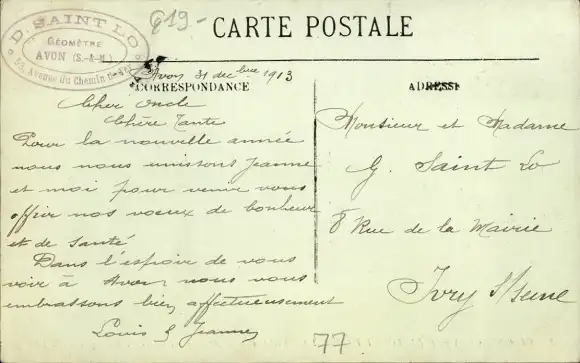 G19.-
CARTE POSTALE
D. SAINT LO
GÉOMÈTRE
AVON (S.-&-M.)
Avenue du Chemin
Avon 31 décbre 1913
CORRESPONDANCE
ADRESSE
Cher Oncle
Chère Tante
Pour la nouvelle année
nous nous unissons Jeanne
et moi pour venir vous
offrir nos voeux de bonheur
et de santé
Dans l'espoir de vous
voir à Avon nous vous
embrassons bien affectueusement
Louis & Jeanne
Monsieur et Madame
G. Saint Lo
8 Rue de la Mairie
Ivry s/Seine
77